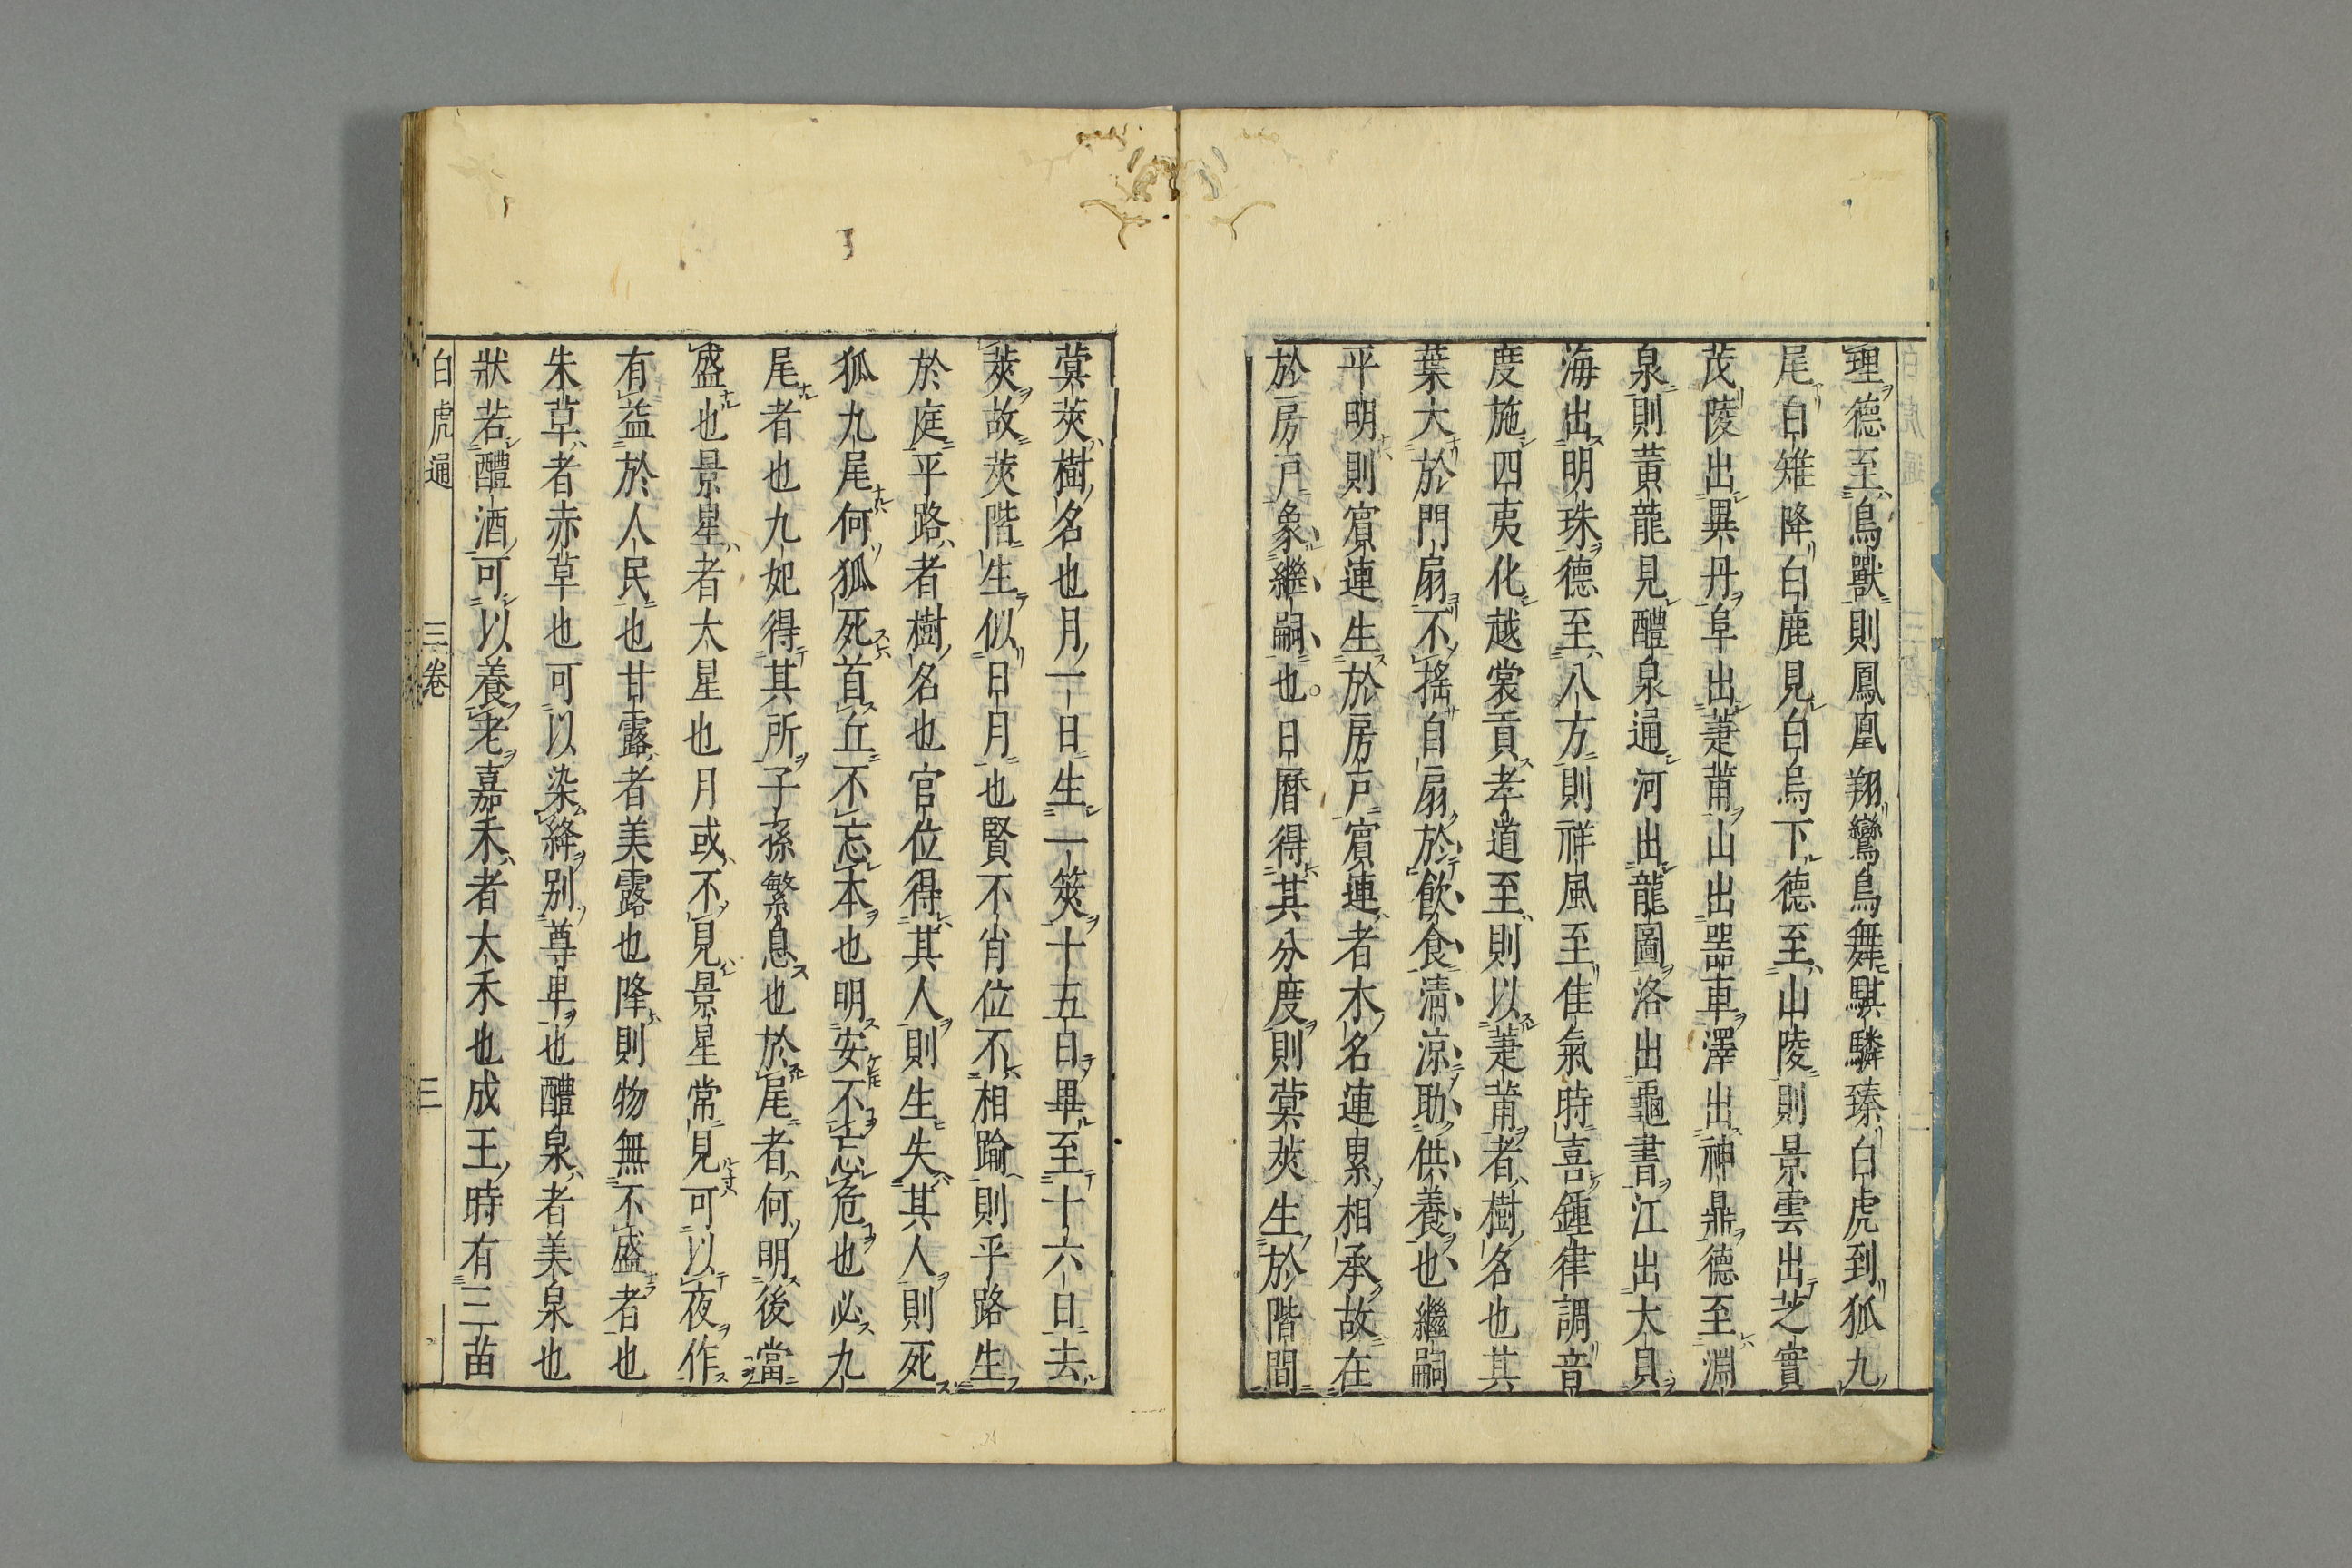 理德至鳥獸則鳳凰翔鸞鳥舞騏驎臻白虎到狐九
尾白雉降白鹿見白烏下德至山陵則景雲出芝實
茂陵出異丹阜出萐莆山出噐車澤出神鼎德至淵
泉則黃龍見醴泉通河出龍圖洛出龜書江出大貝
海出明珠德至八方則祥風至佳氣時喜鍾律調音
度施四夷化越裳貢孝道至則以萐莆者樹名也其
葉大於門扇不搖自扇於飲食淸涼助供養也繼嗣
平明則賓連生於房戸賓連者木名連累相承故在
於房戸象繼嗣也。日曆得其分度則蓂莢生於階間
蓂莢樹名也月一日生一筴十五日畢至十六日去
莢故莢階生似日月也賢不肖位不相踰則平路生
於庭平路者樹名也官位得其人則生失其人則死
狐九尾何狐死首丘不忘本也明安不忘危也必九
尾者也九妃得其所子孫繁息也於尾者何明後當
盛也景星者大星也月或不見景星常見可以夜作
有益於人民也甘露者美露也降則物無不盛者也
朱草者赤草也可以染絳別尊卑也醴泉者美泉也
狀若醴酒可以養老嘉禾者大禾也成王時有三苗
白虎通 三卷 三